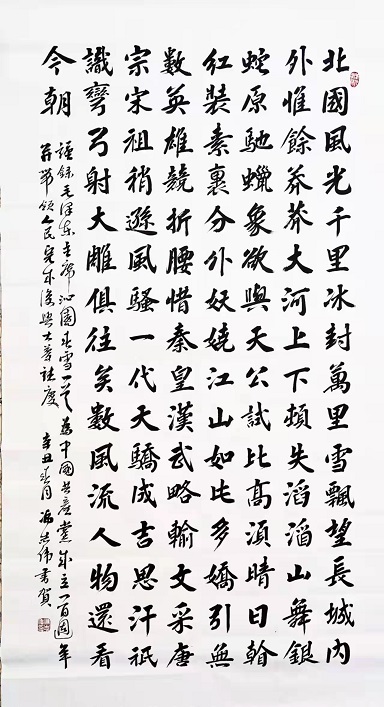 北國風光千里冰封萬里雪飄望長城內
外惟餘莽莽大河上下頓失滔滔山舞銀
蛇原馳蠟象欲與天公試比高須晴日看
紅裝素裹分外妖嬈江山如此多嬌引無
數英雄競折腰惜秦皇漢武略輸文采唐
宗宋祖稍遜風騷一代天驕成吉思汗祇
識彎弓射大雕俱往矣數風流人物還看
今朝
謹錄毛澤東主席沁園春雪一首為中國共產黨成立一百周年
并帶領人民完成復興大業誌慶 辛丑春月 馮偉書賀